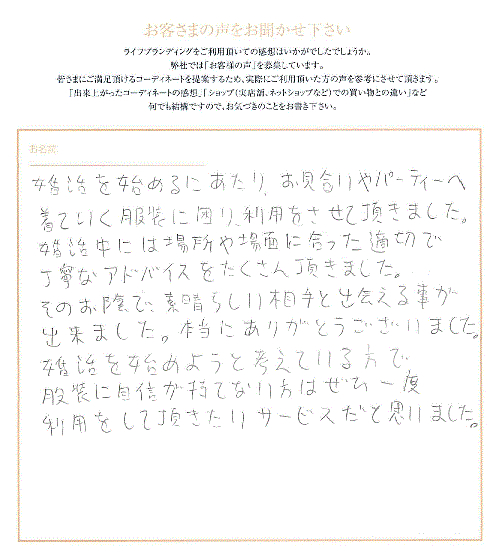 お客さまの声をお聞かせ下さい
ライフブランディングをご利用頂いての感想はいかがでしたでしょうか。
弊社では「お客様の声」を募集しています。
皆さまにご満足頂けるコーディネートを提案するため、実際にご利用頂いた方の声を参考にさせて頂きます。
「出来上がったコーディネートの感想」「ショップ(実店舗、ネットショップなど)での買い物との違い」など
何でも結構ですので、お気づきのことをお書き下さい。
お名前
婚治を始めるにあたり、お見合いやパーティーへ
着ていく服装に困り、利用をさせて頂きました。
婚治中には場所や場面に合った適切で
丁寧なアドバイスをたくさん頂きました。
そのお陰で、素晴らしい相手と出会える事が
出来ました。本当にありがとうございました。
婚治を始めようと考えている方で
服装に自信が持てない方はぜひ一度
利用をして頂きたいサービスだと思いました。